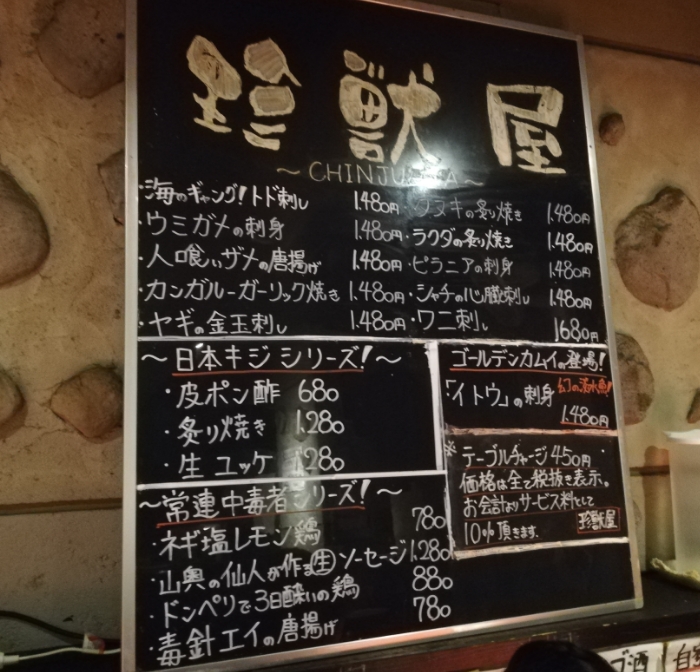 珍獣屋
~CHINJU A~
・海のギャング!トド刺し 1.480円
・ウミガメの刺身 1.480円
・人喰いザメの唐揚げ 1.480円
・カンガルーガーリック焼き 1.480円
・ヤギの金玉刺し 1.480円
・タヌキの炙り焼き 1.480円
・ラクダの炙り焼き 1.480円
・ピラニアの刺身 1.480円
・シャチの心臓刺し 1.480円
・ワニ刺し 1680円
~日本キジシリーズ!~
・皮ポン酢 680
・炙り焼き 1.280
・生ユッケ 1.280
ゴールデンカムイの登場!
・「イトウ」の刺身 幻の淡水魚!
1.480円
※テーブルチャージ450円
価格は全て税抜き表示。
お会計よりサービス料として
10%頂きます。 珍獣屋
~常連中毒者シリーズ!~
・ネギ塩レモン鶏 780
・山奥の仙人が作る生ソーセージ 1.280
・ドンペリで3日酔いの鶏 880
・毒針エイの唐揚げ 780
酒